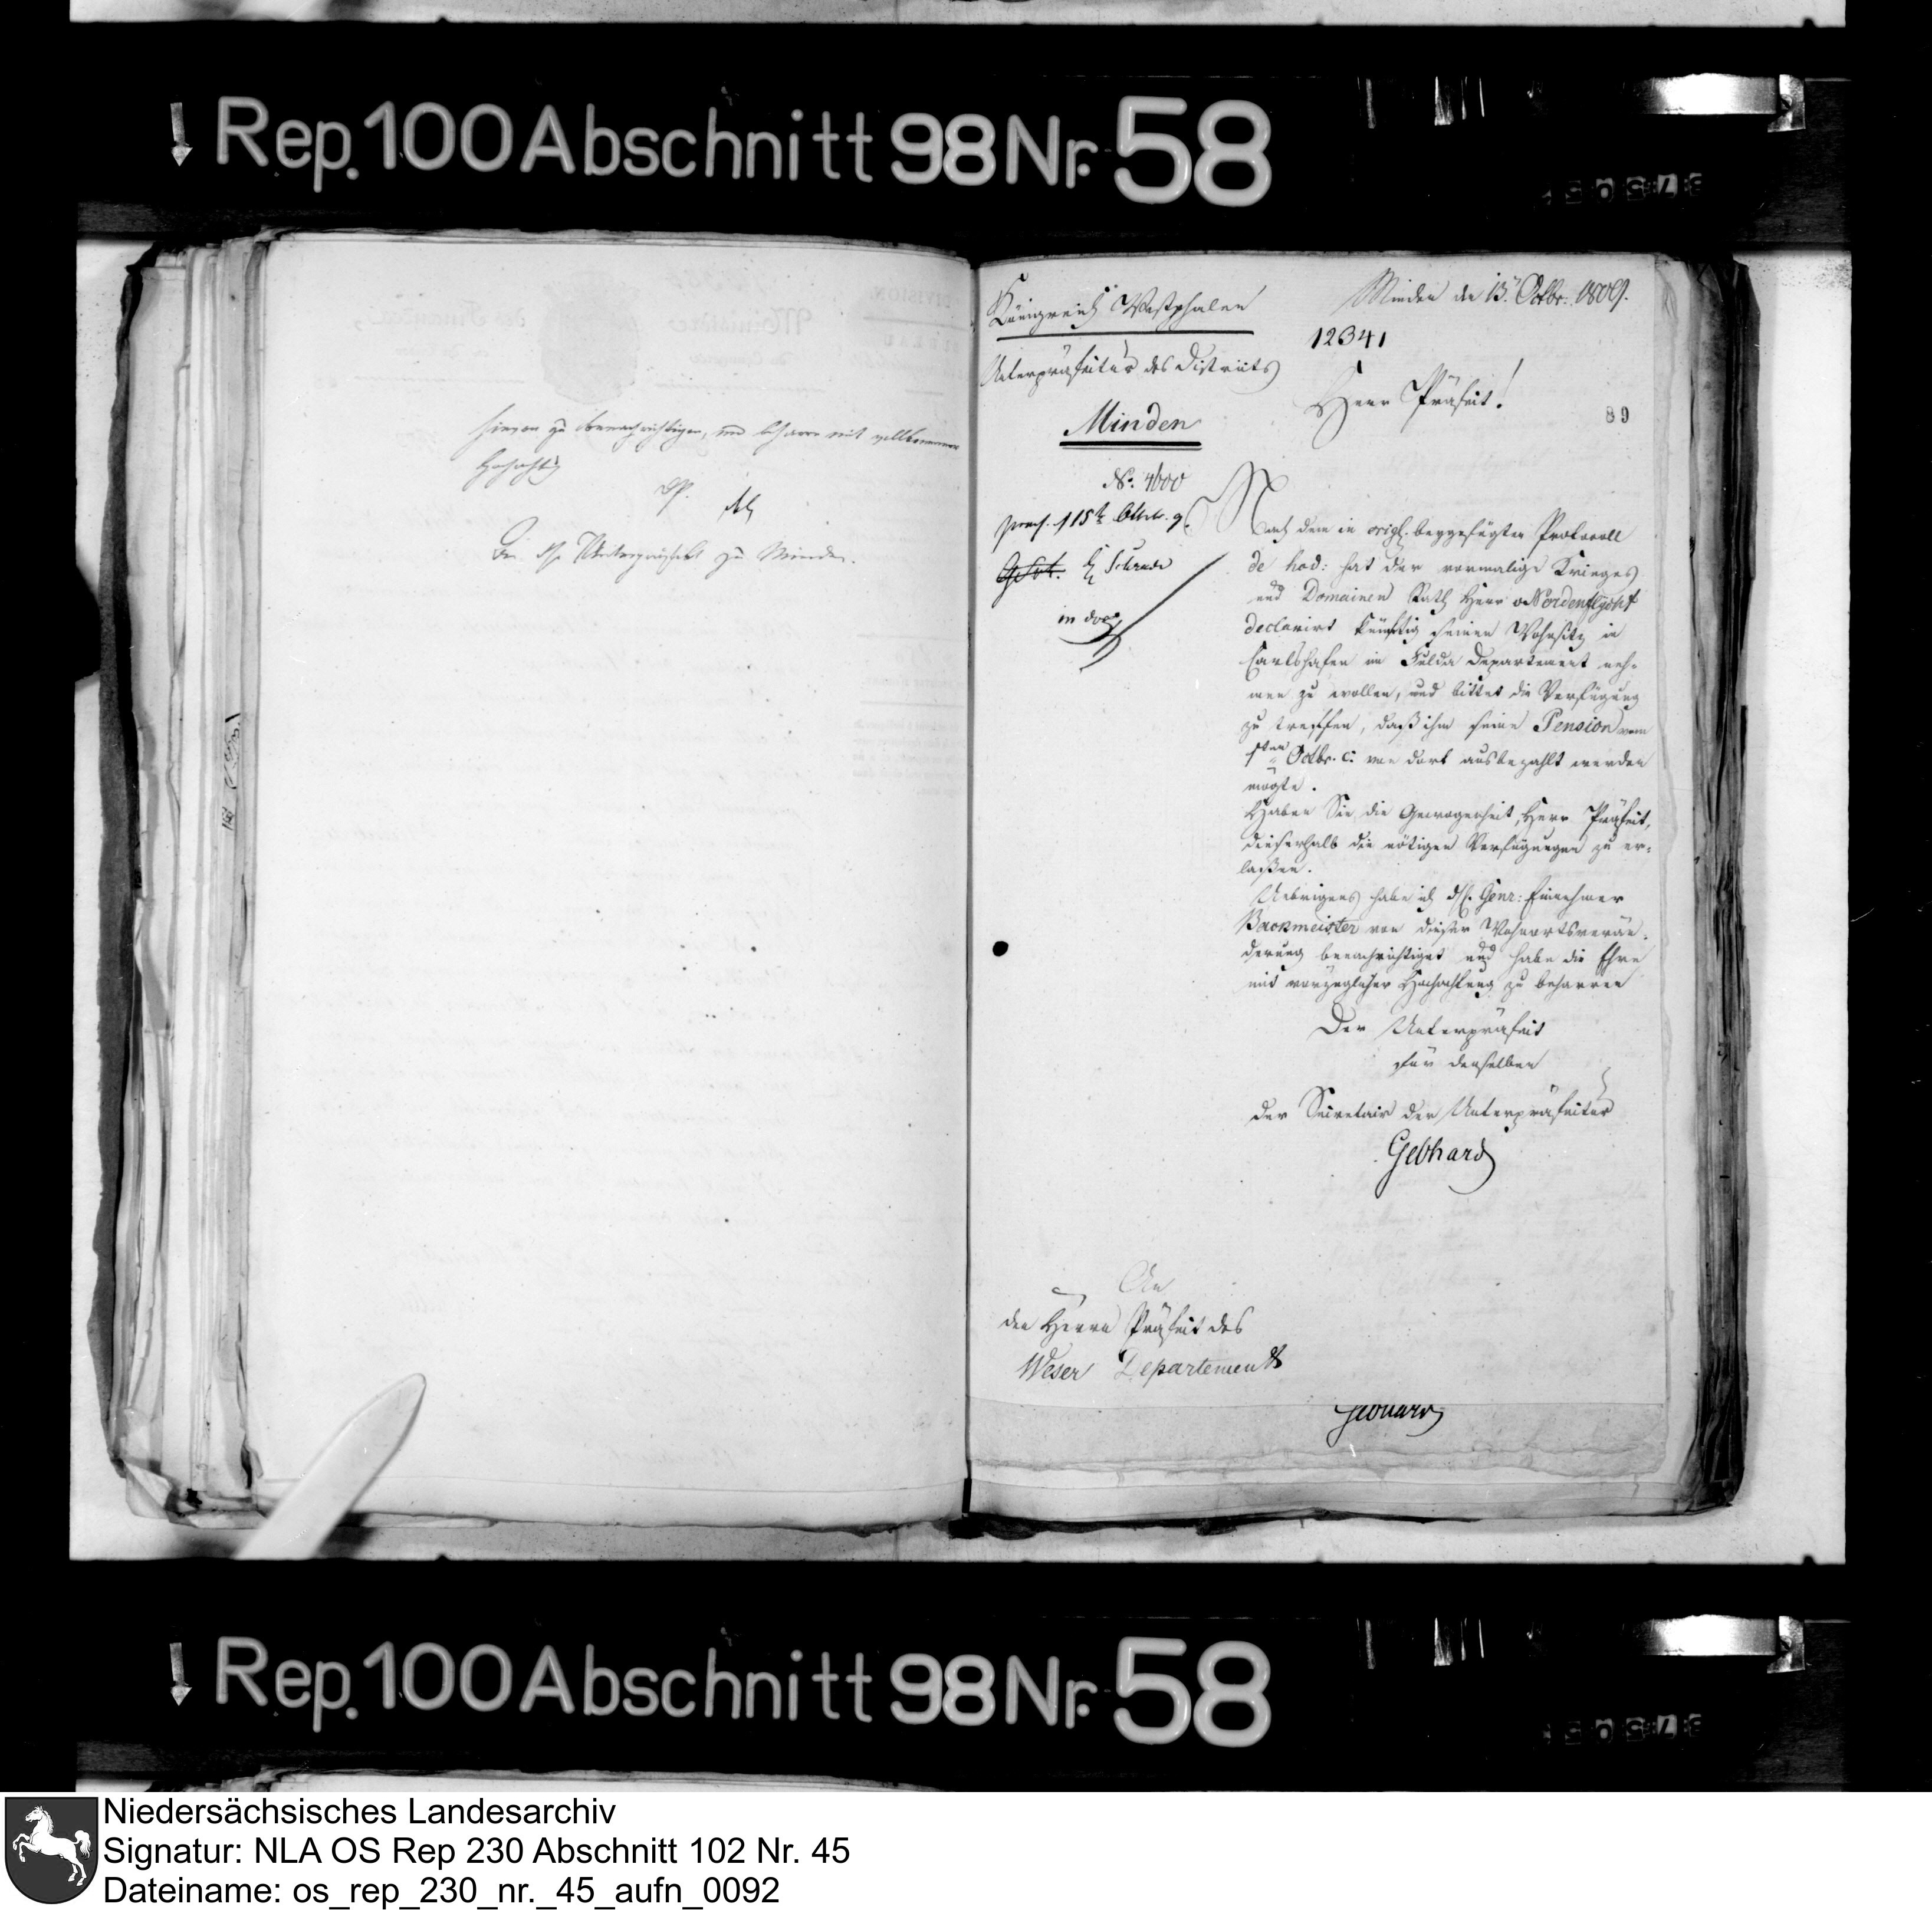 Rep. 100 Abschnitt 98 Nr. 58
hievon zu benachrichtigen, und beharre mit vollkommener
Hochachtg
D. P.
An d. H. Unterpräfekt zu Minden.
Königreich Westphalen
Unterpräfectur des Districts
Minden
No. 4600
praes. 15t Octbr. 9.
Minden den 13t Octbr. 1809.
12341
Herr Präfect!
89
Nach dem in origl. beygefügten Protocoll
de hod: hat der vormalige Krieges
und Domainen Rath Herr v Nordenflycht
declarirt künftig seinen Wohnsitz in
Carlshafen im Fulda Departement neh-
men zu wollen, und bittet die Verfügung
zu treffen, daß ihm seine Pension vom
1sten Octbr. c: von dort ausbezahlt werden
mögte.
Haben Sie die Gewogenheit, Herr Präfect,
dieserhalb die nötigen Verfügungen zu er-
laßen.
Uebrigens habe ich d. H. Genr: Einnehmer
Backmeister von dieser Wohnortsverän-
derung benachrichtiget und habe die Ehre
mit vorzüglicher Hochachtung zu beharren
Der Unterpräfect
für denselben
der Secretair der Unterpräfectur
Gebhard
An
den Herrn Präfect des
Weser Departements
Gebhard
Rep. 100 Abschnitt 98 Nr. 58
Niedersächsisches Landesarchiv
Signatur: NLA OS Rep 230 Abschnitt 102 Nr. 45
Dateiname: os_rep_230_nr._45_aufn_0092